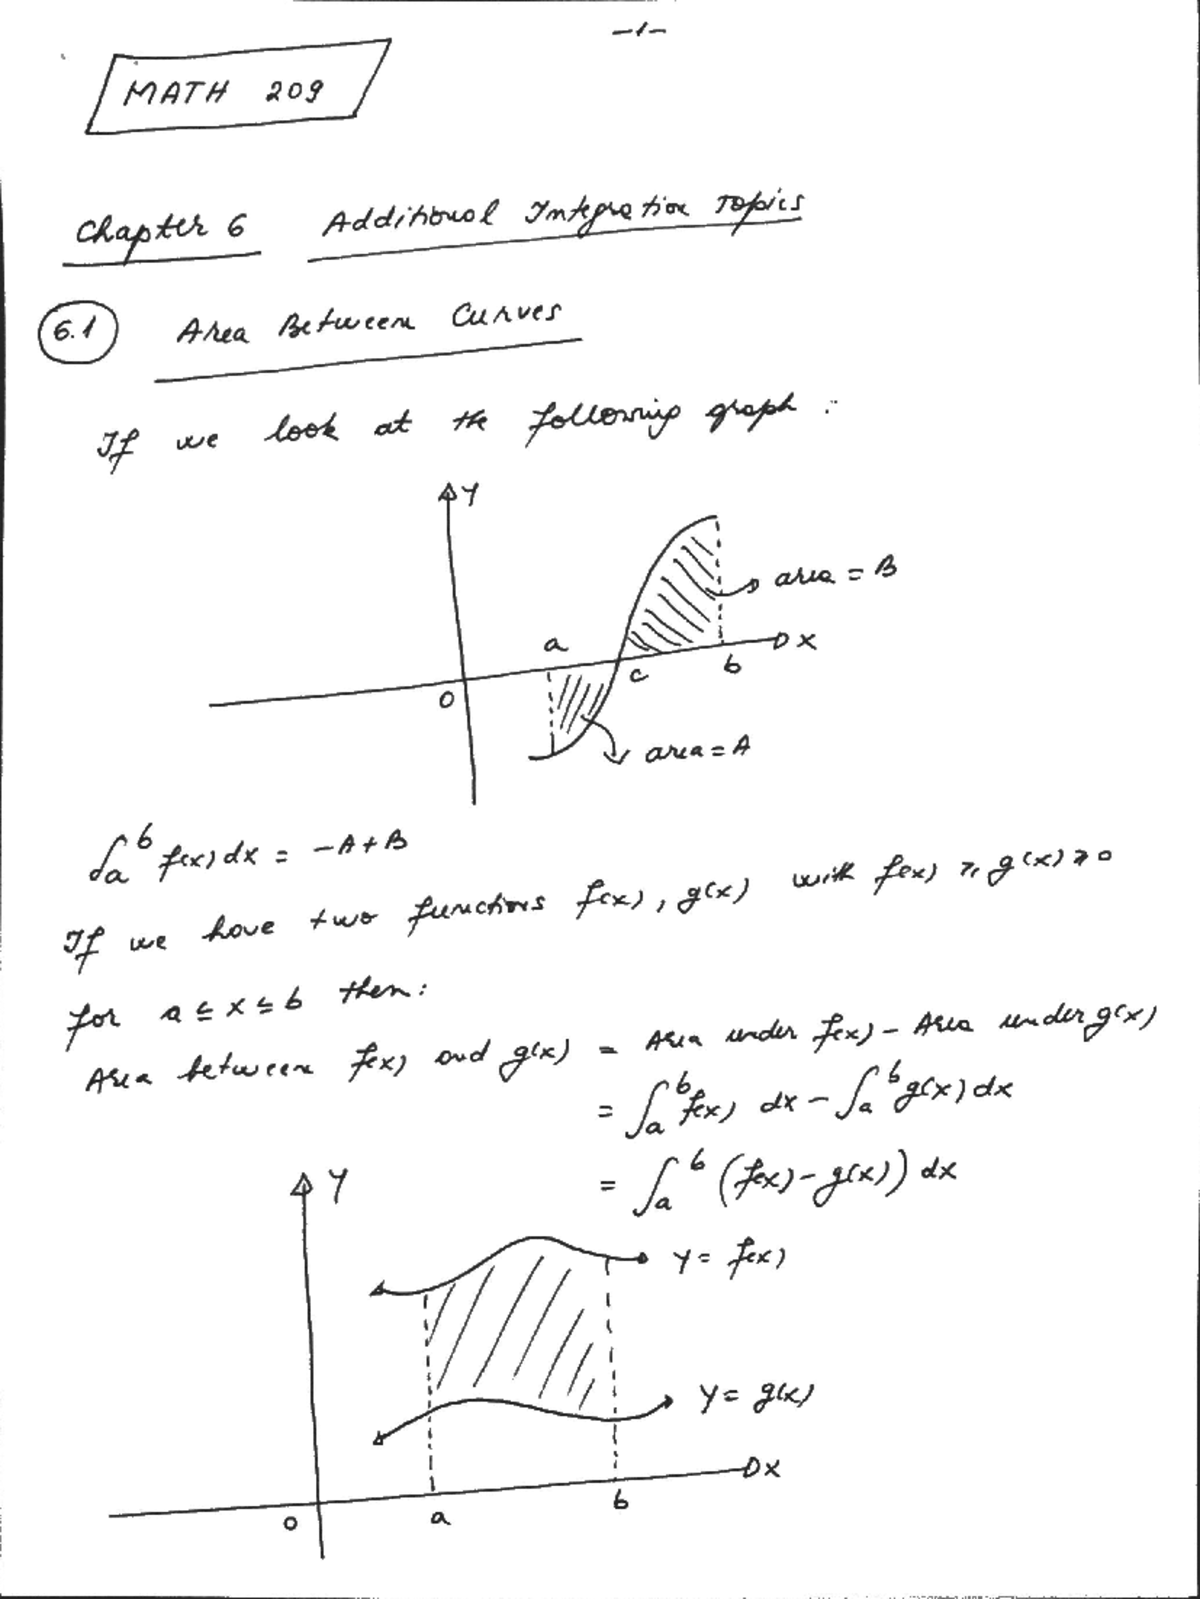 -1-
MATH 209
Chapter 6 Additional Integration Topics
6.1 Area Between Curves
If we look at the following graph :
Y
area = B
a
X
c
b
0
area = A
∫_a^b f(x) dx = -A+B
If we have two functions f(x), g(x) with f(x) ≥ g(x) ≥ 0
for a ≤ x ≤ b then:
Area between f(x) and g(x) = Area under f(x) - Area under g(x)
= ∫_a^b f(x) dx - ∫_a^b g(x) dx
= ∫_a^b (f(x) - g(x)) dx
Y
Y = f(x)
Y = g(x)
X
0
a
b